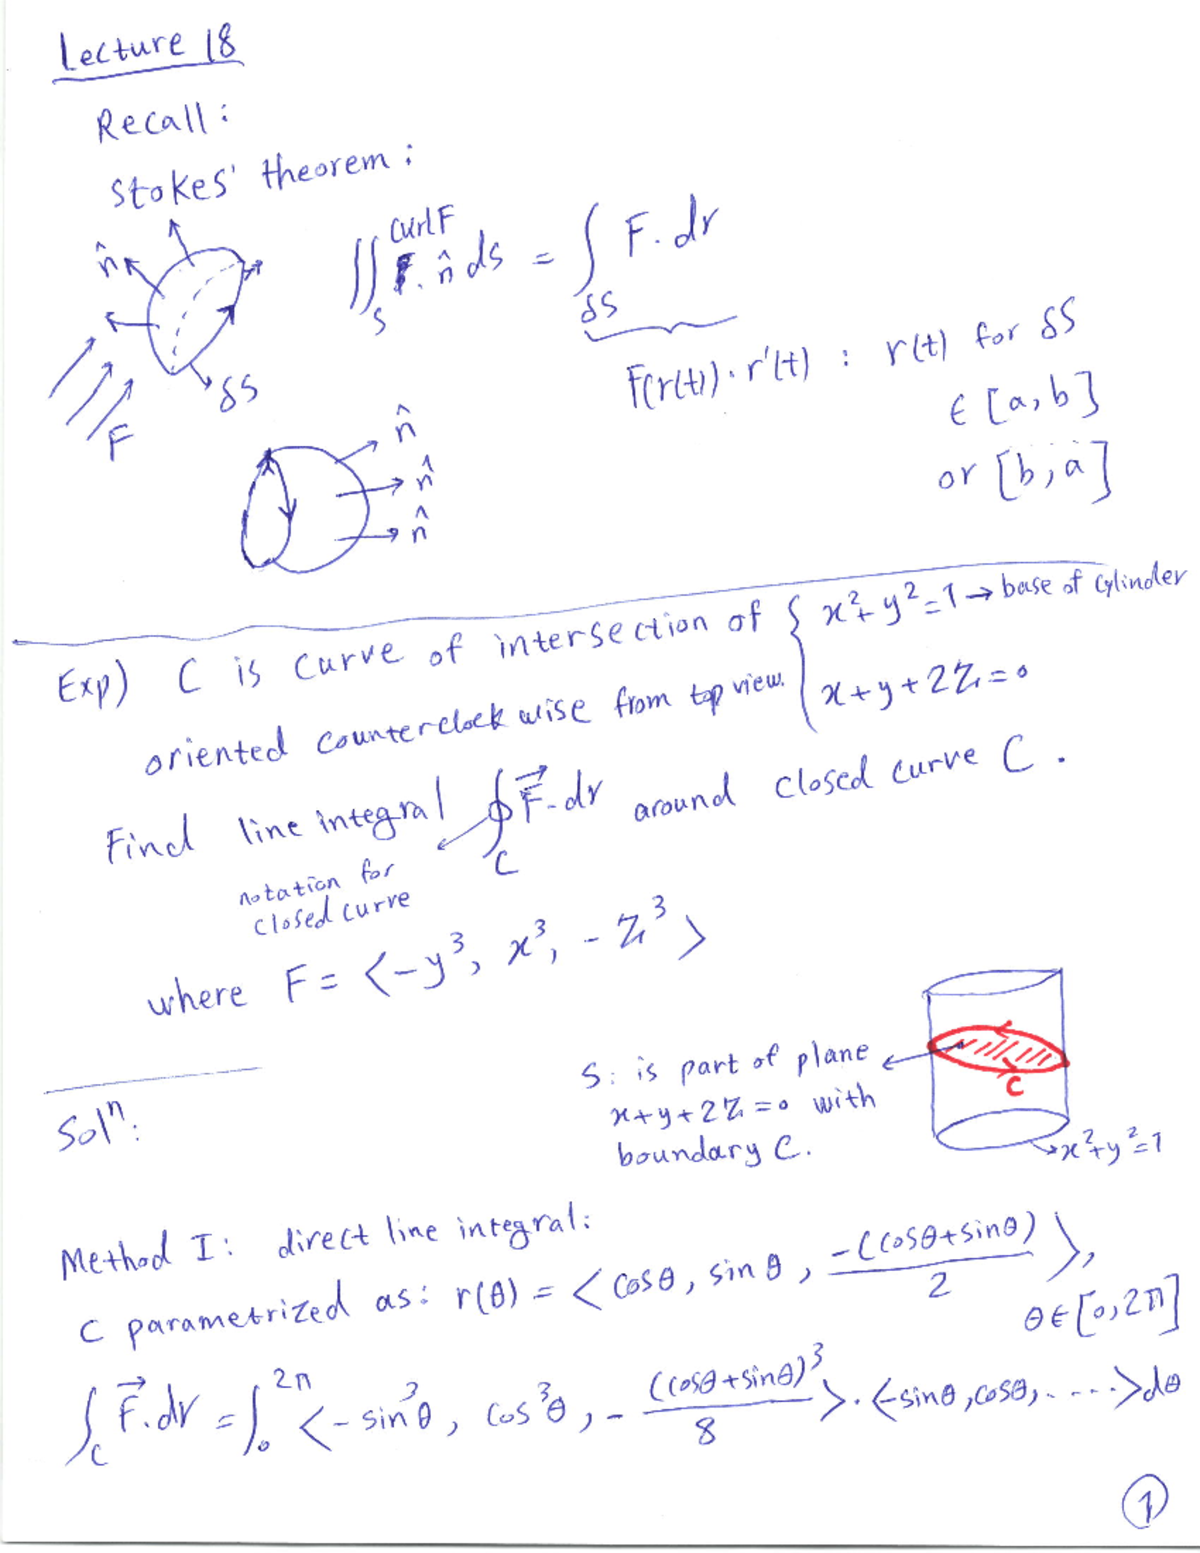 Lecture 18
Recall:
Stokes' theorem:
∬_S curl F . n̂ ds = ∫_δS F. dr
n̂
δS
F
F(r(t)) . r'(t) : r(t) for δS
∈ [a,b]
or [b,a]
n̂
n̂
n̂
Exp) C is curve of intersection of { x²+y²=1 → base of cylinder
oriented counterclockwise from top view. x+y+2z=0
Find line integral ∮_C F⃗.dr around closed curve C.
notation for
closed curve
where F = <-y³, x³, -z³>
Solⁿ:
S: is part of plane
x+y+2z=0 with
boundary C.
C
x²+y²=1
Method I: direct line integral:
C parametrized as: r(θ) = < cosθ, sinθ, -(cosθ+sinθ)/2 >,
θ∈[0,2π]
∫_C F⃗.dr = ∫_0^2π <-sin³θ, cos³θ, -(cosθ+sinθ)³/8 > . <-sinθ, cosθ, .....>dθ
1